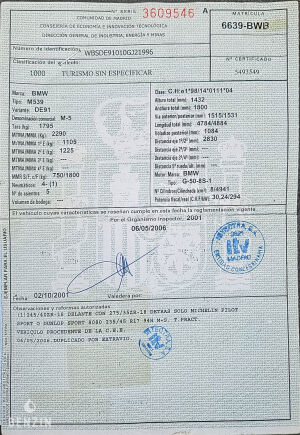 3609546
COMUNIDAD DE MADRID
CONSEJERÍA DE ECONOMÍA E INNOVACIÓN TECNOLÓGICA
DIRECCIÓN GENERAL DE INDUSTRIA, ENERGÍA Y MINAS
MATRÍCULA
6639-BWB
Número de identificación
WBSDE91010GJ21995
Clasificación del vehículo
1000 TURISMO SIN ESPECIFICAR
Nº CERTIFICADO
5493549
Marca: BMW
Tipo: M539
Variante: DE91
Denominación comercial: M-5
Tara (kg): 1795
MTMA/MMA (kg): 2290
MTMA/MMA 1º E (kg): 1105
MTMA/MMA 2º E (kg): 1225
MTMA/MMA 3º E (kg): ----
MTMA/MMA 4º E (kg): ----
MMR S/F. c/F (kg): 750/1800
Neumáticos: 4-(1)
Nº de asientos: 5
Altura total (mm): 1432
Anchura total (mm): 1800
Vía anterior/posterior (mm): 1515/1531
Longitud total (mm): 4784/4884
Voladizo posterior (mm): 1084
Distancia ejes 1º/2º (mm): 2830
Motor: Marca: BMW
Tipo: G-50-8S-1
Nº Cilindros/Cilindrada (cm3): 8/4941
Potencia fiscal/real (C.V.F/kW): 30,24/294
El vehículo cuyas características se reseñan cumple en esta fecha la reglamentación vigente.
Por el Organismo Inspector, 2001
06/05/2006
02/10/2001
Valedera por:
EJEMPLAR PARA EL USUARIO
Observaciones y reformas autorizadas
(1)245/40ZR-18 DELANTE CON 275/35ZR-18 DETRAS SOLO MICHELIN PILOT
SPORT O DUNLOP SPORT 8080 235/45 R17 94H M+S. T.FRACT.
VEHICULO PROCEDENTE DE LA C.E.E.
06/05/2006.DUPLICADO POR EXTRAVIO
BENZIN